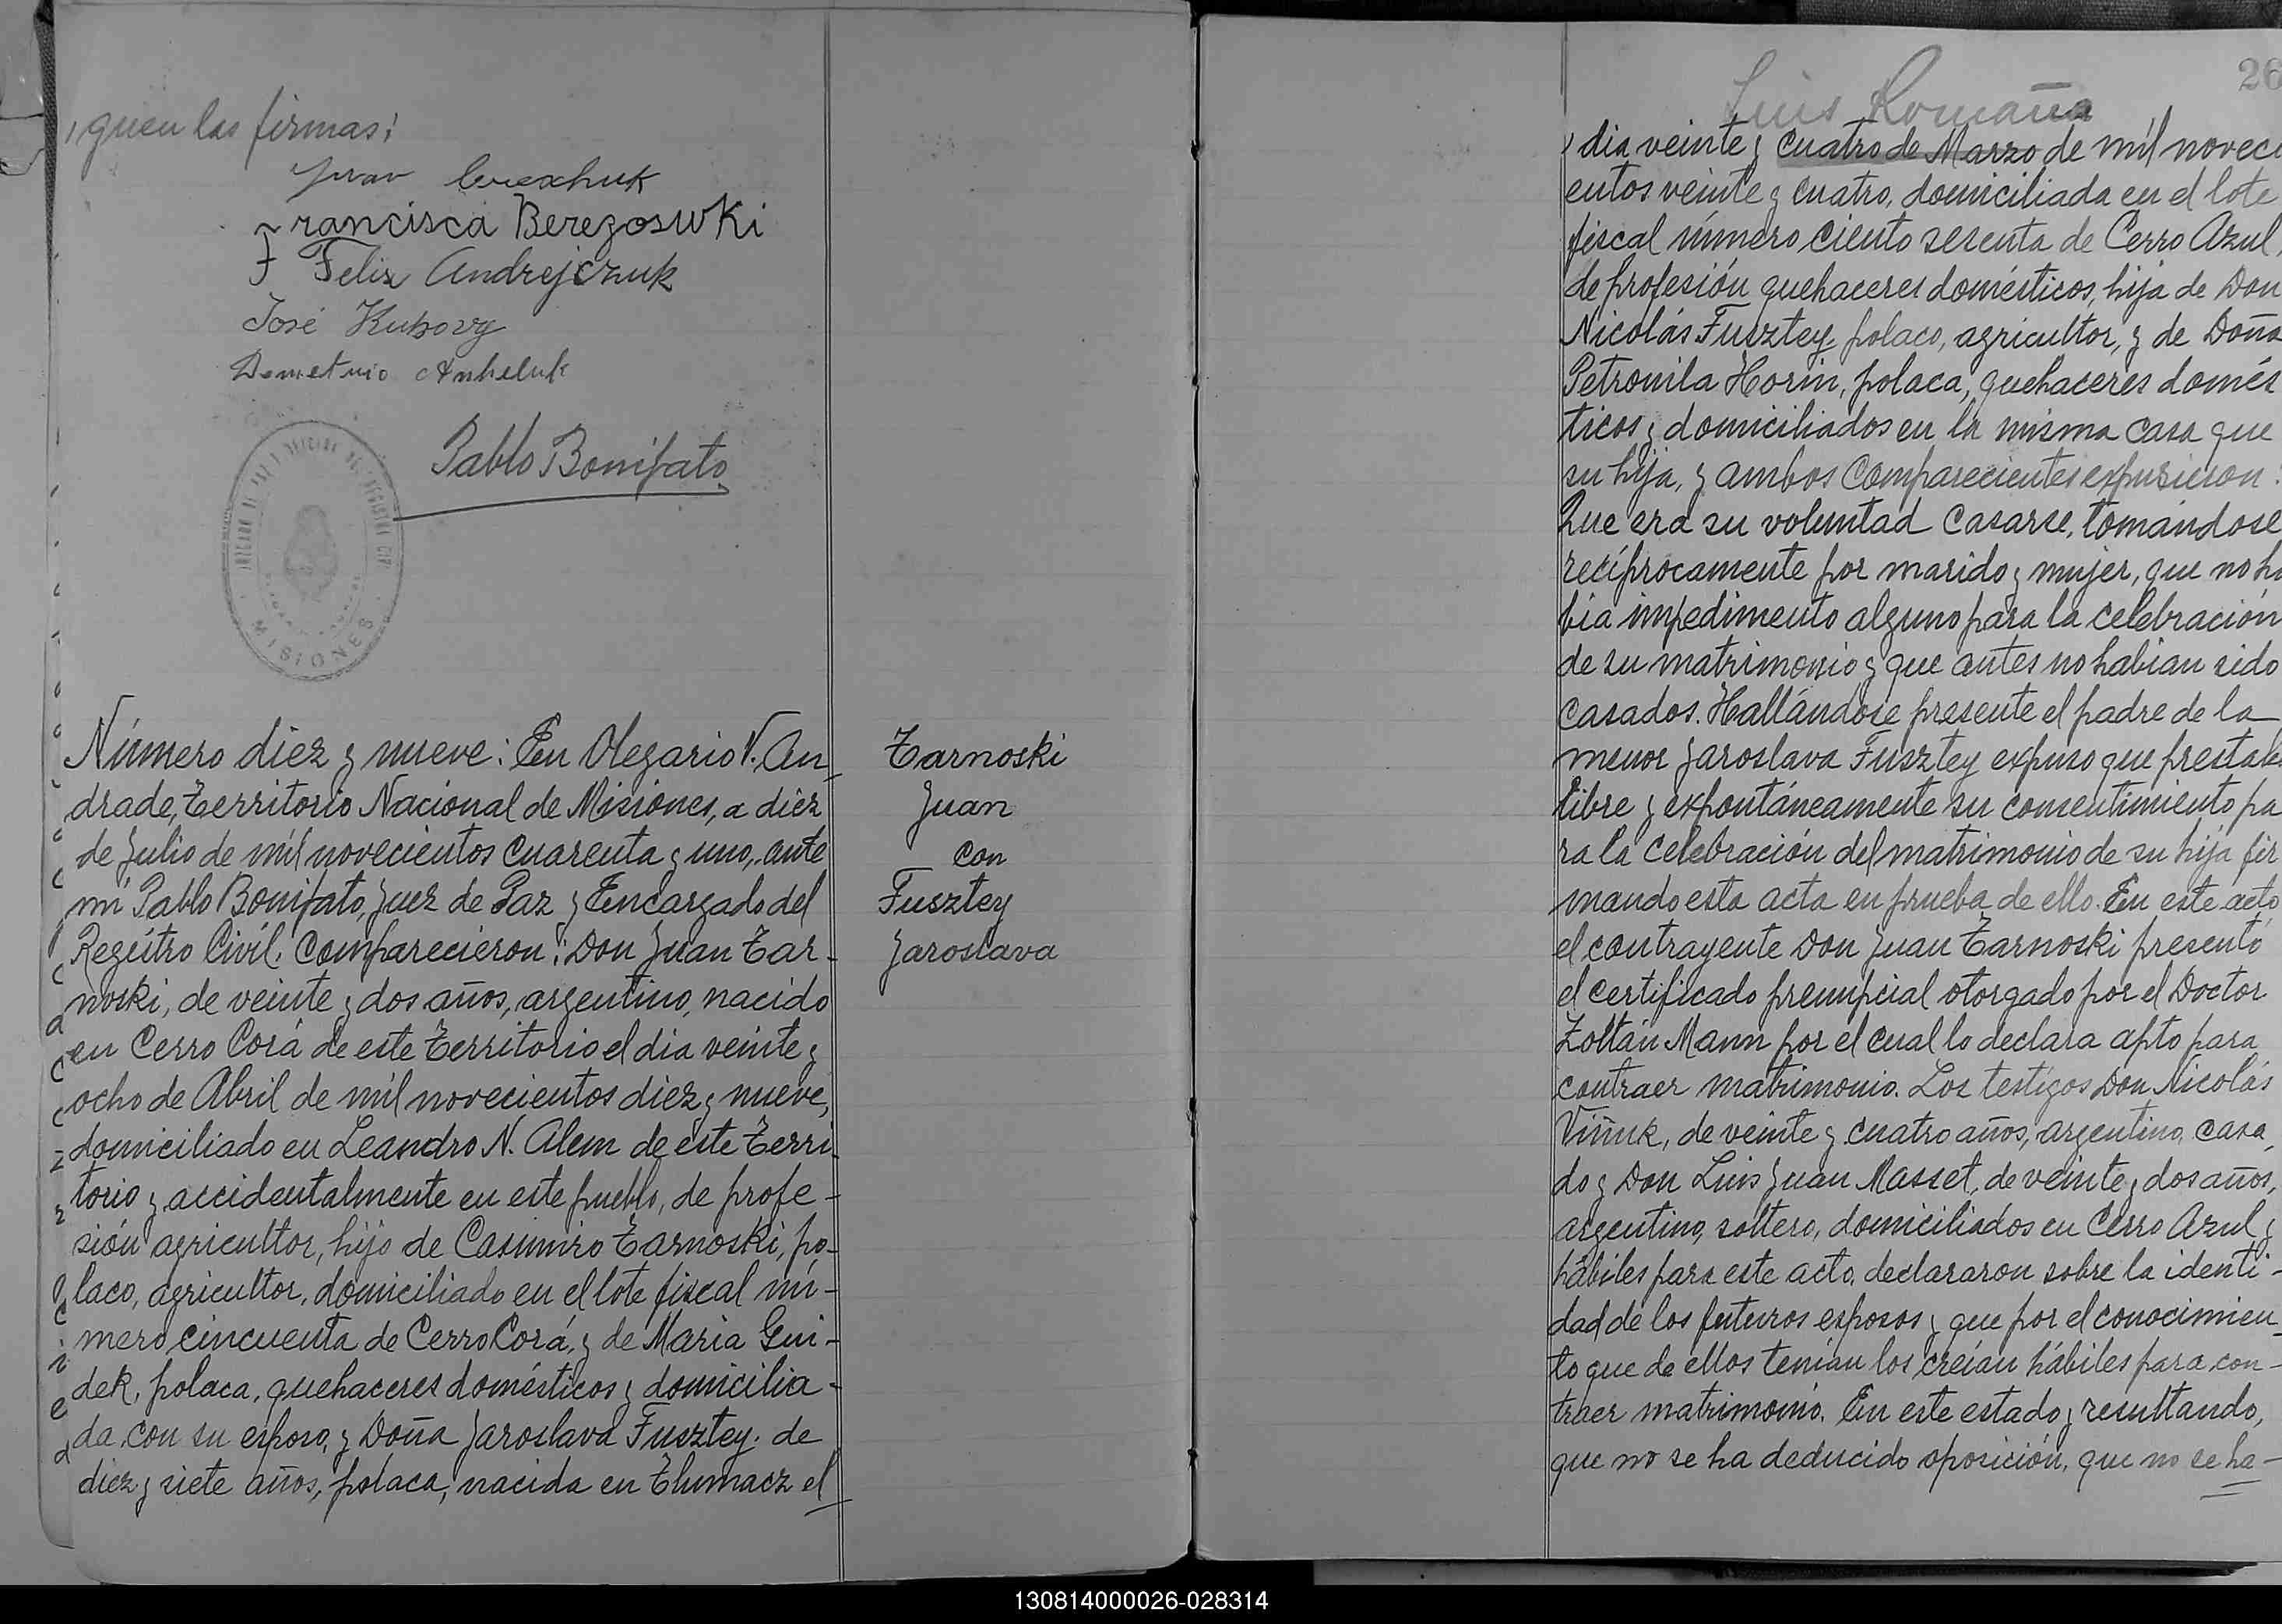 iguen las firmas:
Francisca BerezoswKi
Felix Andrejczuk
José Kubovy
Demetrio Anheluk
Pablo Bonifato
JUZGADO DE PAZ Y OFICINA DEL REGISTRO CIVIL
MISIONES
Número diez y nueve: En Olegario V. An-
drade, Territorio Nacional de Misiones, a diez
de Julio de mil novecientos cuarenta y uno, ante
mí Pablo Bonifato, Juez de Paz y Encargado del
Registro Civil, comparecieron: Don Juan Tar-
noski, de veinte y dos años, argentino, nacido
en Cerro Corá de este Territorio el dia veinte y
ocho de Abril de mil novecientos diez y nueve,
domiciliado en Leandro N. Alem de este Terri-
torio y accidentalmente en este pueblo, de profe-
sión agricultor, hijo de Casimiro Tarnoski, po-
laco, agricultor, domiciliado en el lote fiscal nú-
mero cincuenta de Cerro Corá, y de Maria Gui-
dek, polaca, quehaceres domésticos y domicilia-
da con su esposo, y Doña Jaroslava Fusztey, de
diez y siete años, polaca, nacida en Tlumacz el
Tarnoski
Juan
con
Fusztey
Jaroslava
26
Luis Romaña
dia veinte y cuatro de Marzo de mil noveci
entos veinte y cuatro, domiciliada en el lote
fiscal número ciento sesenta de Cerro Azul,
de profesión quehaceres domésticos, hija de Don
Nicolás Fusztey, polaco, agricultor, y de Doña
Petronila Horin, polaca, quehaceres domés
ticos y domiciliados en la misma casa que
su hija, y ambos comparecientes expusieron:
Que era su voluntad casarse, tomándose
recíprocamente por marido y mujer, que no ha
bia impedimento alguno para la celebración
de su matrimonio y que antes no habian sido
casados. Hallándose presente el padre de la
menor Jaroslava Fusztey expuso que prestaba
libre y expontáneamente su consentimiento pa
ra la celebración del matrimonio de su hija fir
mando esta acta en prueba de ello. En este acto
el contrayente Don Juan Tarnoski presentó
el certificado prenupcial otorgado por el Doctor
Zoltán Mann por el cual lo declara apto para
contraer matrimonio. Los testigos Don Nicolás
Viñuk, de veinte y cuatro años, argentino, casa
do y Don Luis Juan Masset, de veinte y dos años,
argentino, soltero, domiciliados en Cerro Azul y
hábiles para este acto, declararon sobre la identi-
dad de los futuros esposos y que por el conocimien-
to que de ellos tenían los creían hábiles para con-
traer matrimonio. En este estado y resultando,
que no se ha deducido oposición, que no se ha-
130814000026-028314